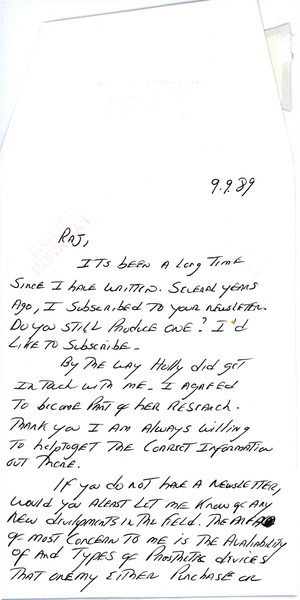 9.9.89
Raj,
Its been a long time
since I have written. Several years
ago, I subscribed to your newsletter.
Do you still produce one? I'd
like to subscribe.
By the way Holly did get
in touch with me. I agreed
to become part of her research.
Thank you I am always willing
to help to get the correct information
out there.
If you do not have a newsletter,
would you aleast let me know of any
new divelpments in the field. The area
of most concern to me is the availability
of and types of prosthetic divices
that one my either purchase or